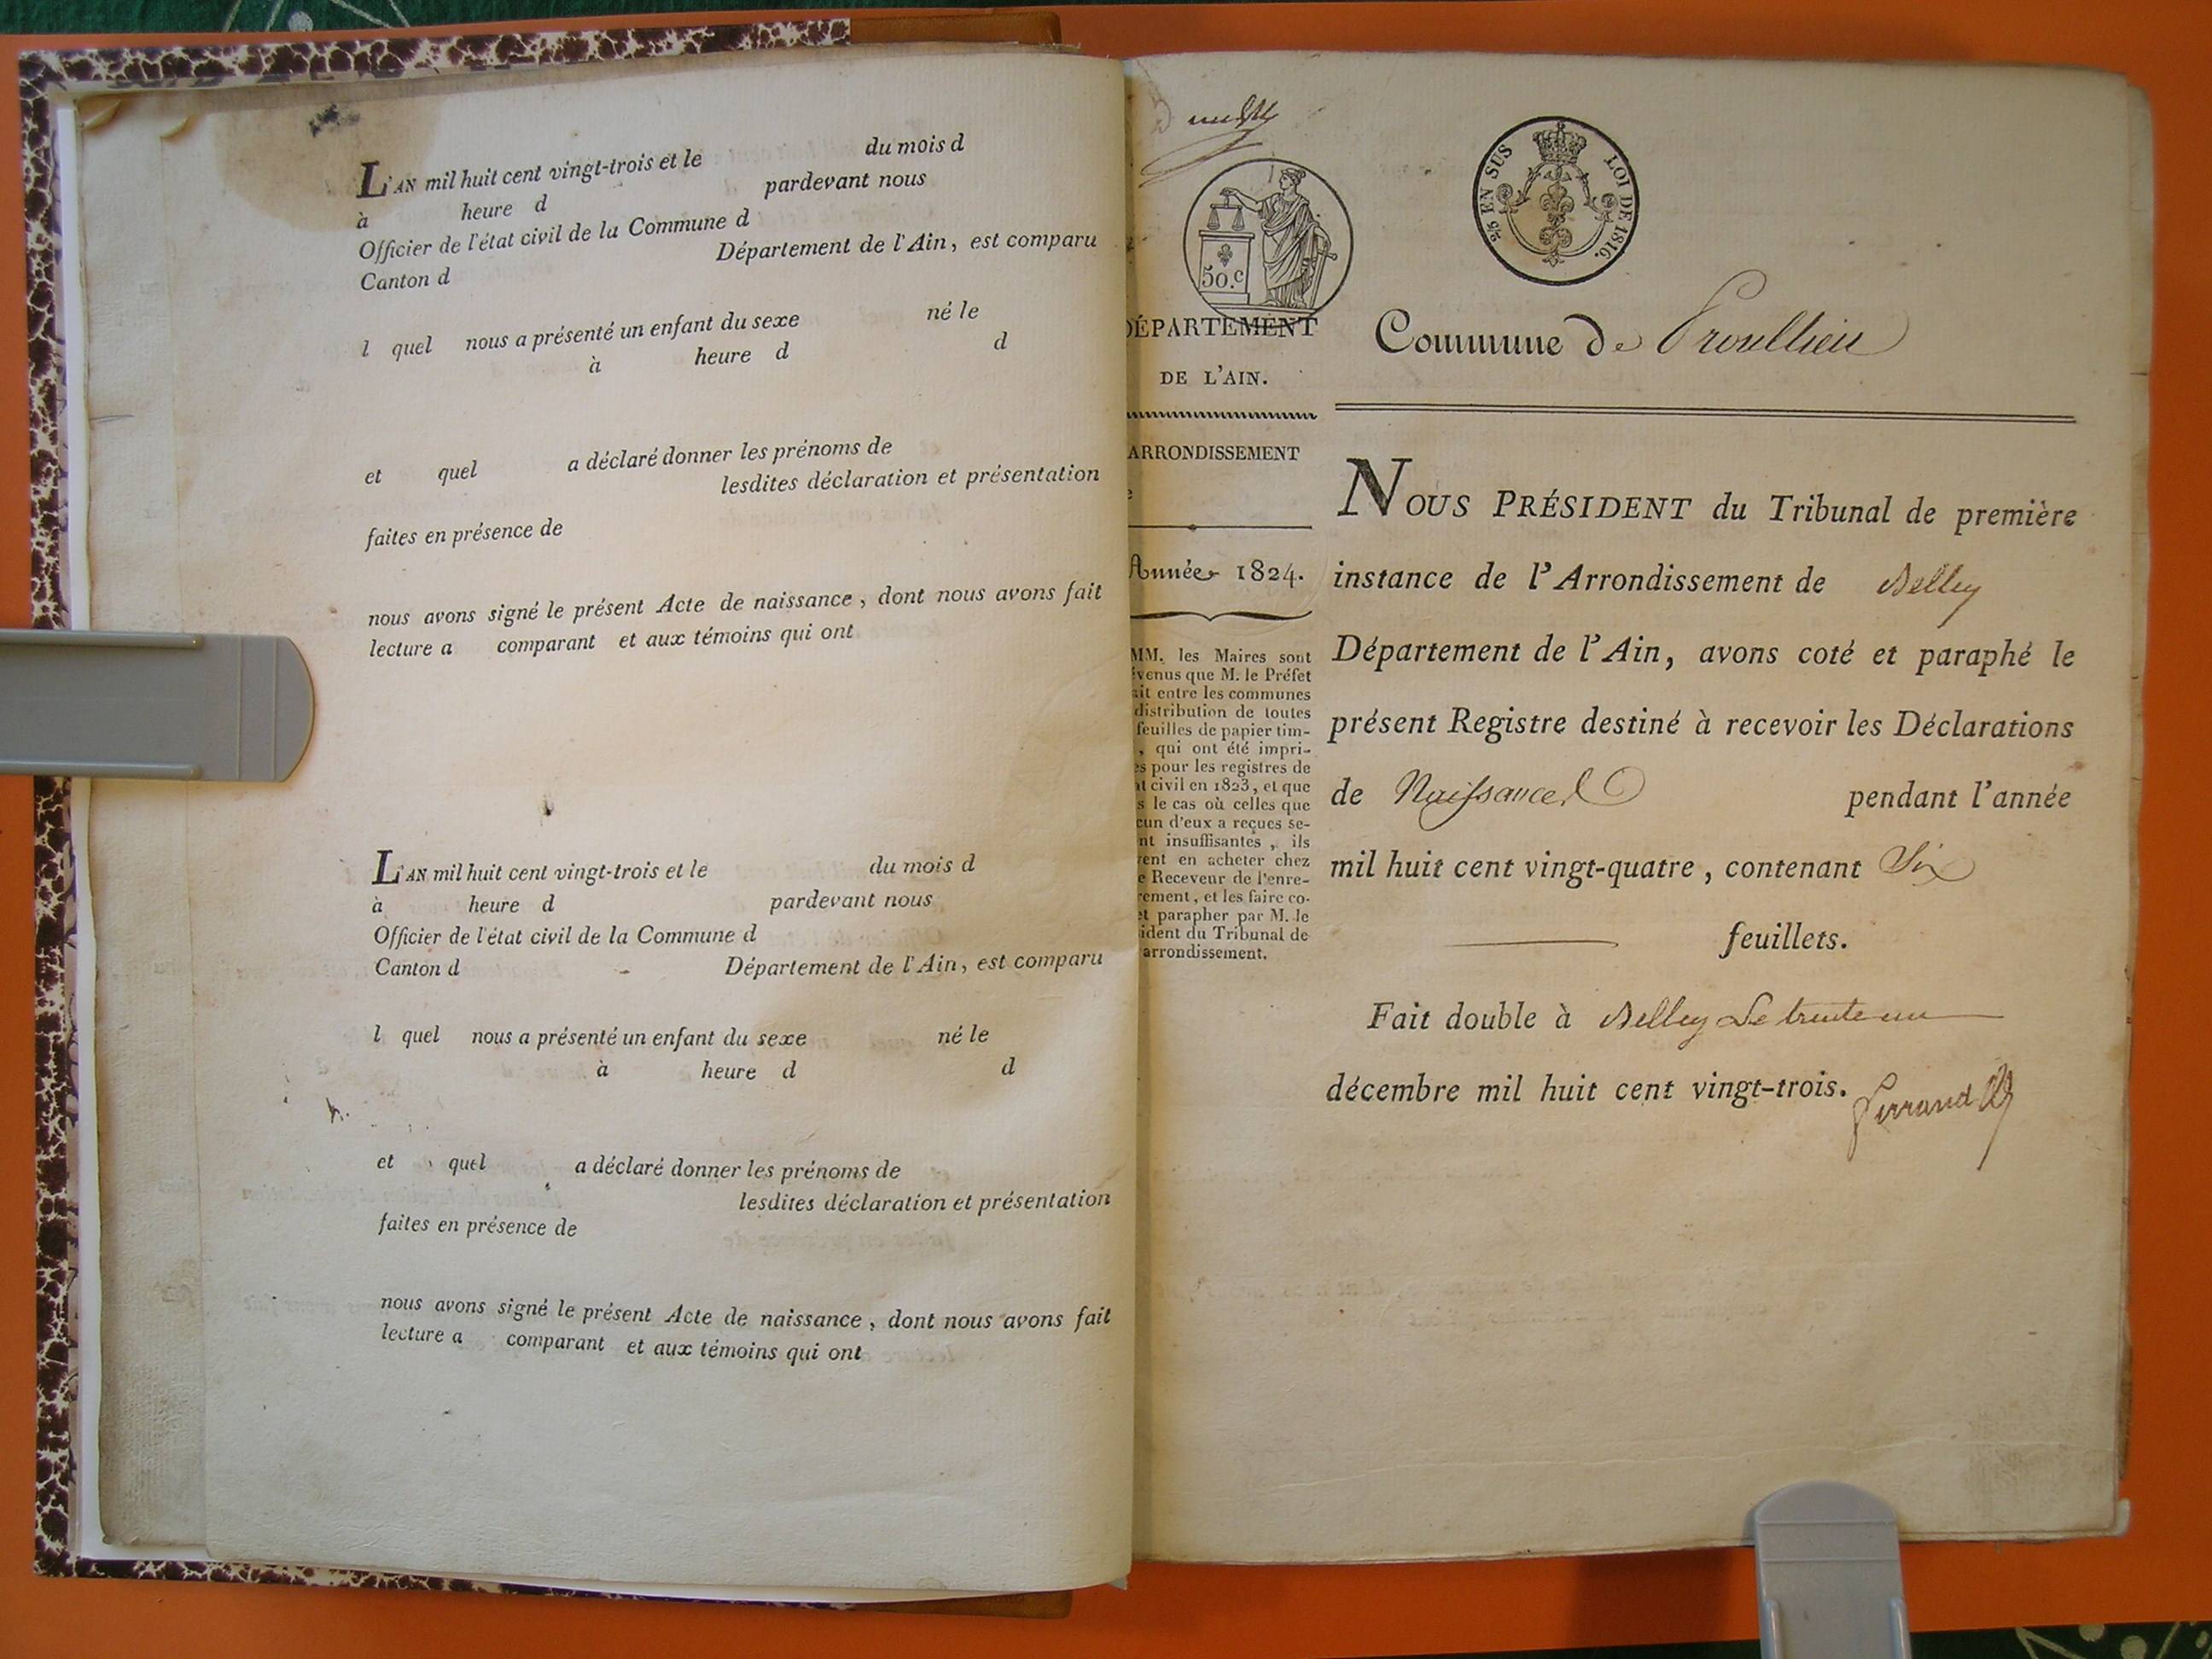 L'AN mil huit cent vingt-trois et le du mois d
à heure d pardevant nous
Officier de l'état civil de la Commune d
Canton d Département de l'Ain, est comparu
l quel nous a présenté un enfant du sexe né le
à heure d d
et quel a déclaré donner les prénoms de
lesdites déclaration et présentation
faites en présence de
nous avons signé le présent Acte de naissance, dont nous avons fait
lecture a comparant et aux témoins qui ont
L'AN mil huit cent vingt-trois et le du mois d
à heure d pardevant nous
Officier de l'état civil de la Commune d
Canton d Département de l'Ain, est comparu
l quel nous a présenté un enfant du sexe né le
à heure d d
et quel a déclaré donner les prénoms de
lesdites déclaration et présentation
faites en présence de
nous avons signé le présent Acte de naissance, dont nous avons fait
lecture a comparant et aux témoins qui ont
50.c
25 EN SUS LOI DE 1816.
DÉPARTEMENT
DE L'AIN.
ARRONDISSEMENT
Année 1824.
MM. les Maires sont
venus que M. le Préfet
ait entre les communes
distribution de toutes
feuilles de papier tim-
, qui ont été impri-
es pour les registres de
at civil en 1823, et que
s le cas où celles que
cun d'eux a reçues se-
nt insuffisantes, ils
vent en acheter chez
e Receveur de l'enre-
rement, et les faire co-
et parapher par M. le
ident du Tribunal de
arrondissement.
Commune de Proullieu
NOUS PRÉSIDENT du Tribunal de première
instance de l'Arrondissement de Belley
Département de l'Ain, avons coté et paraphé le
présent Registre destiné à recevoir les Déclarations
de Naissances pendant l'année
mil huit cent vingt-quatre, contenant Six
feuillets.
Fait double à Belley Le trente un
décembre mil huit cent vingt-trois.